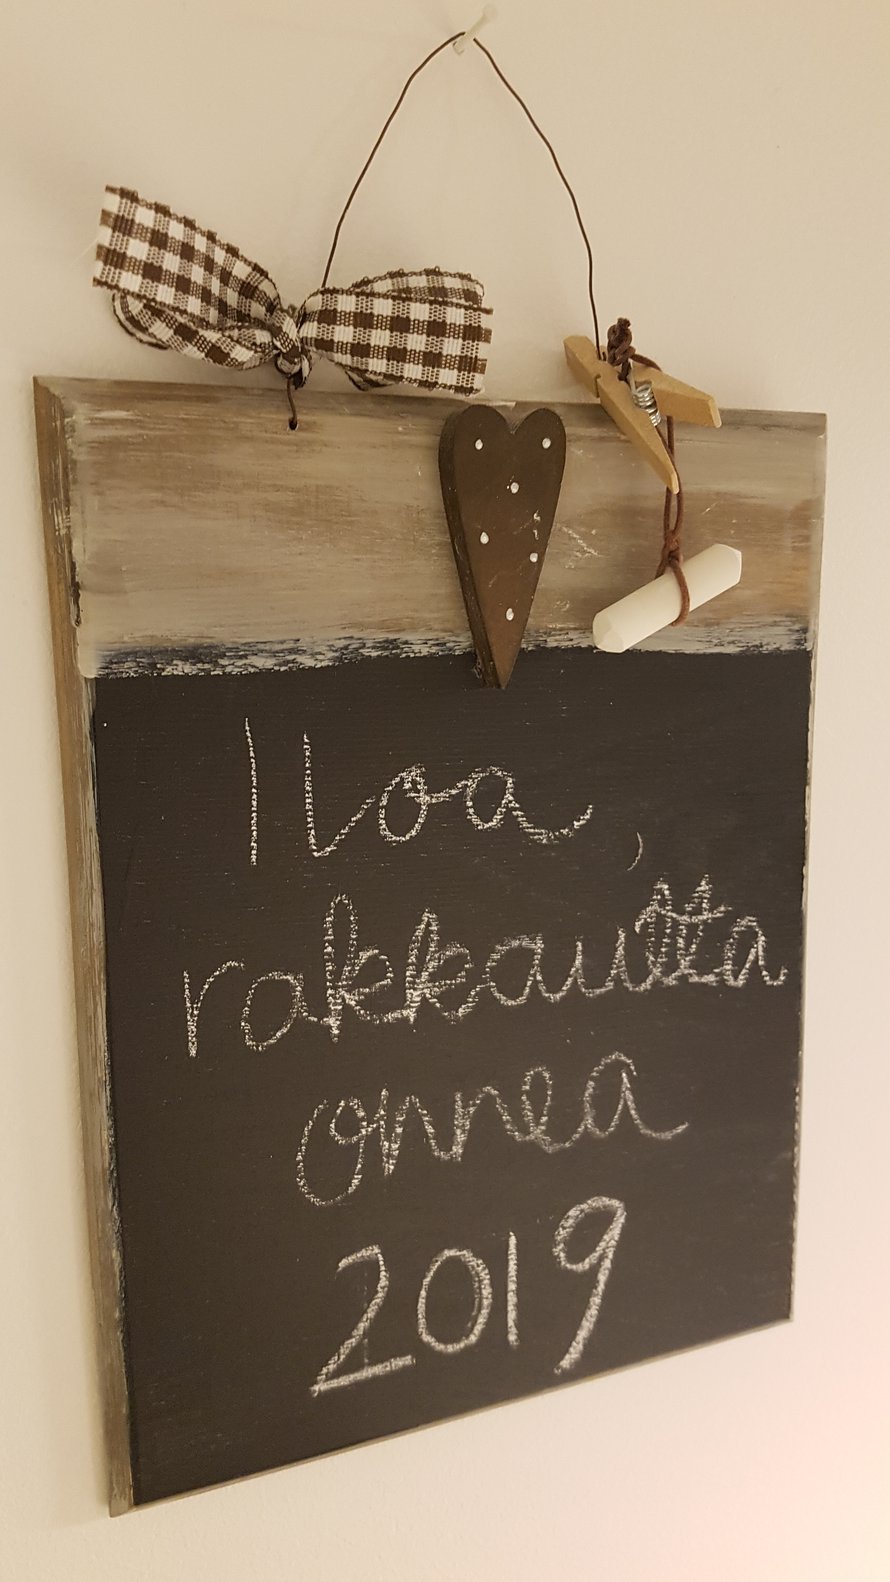 Iloa,
rakkautta
onnea
2019